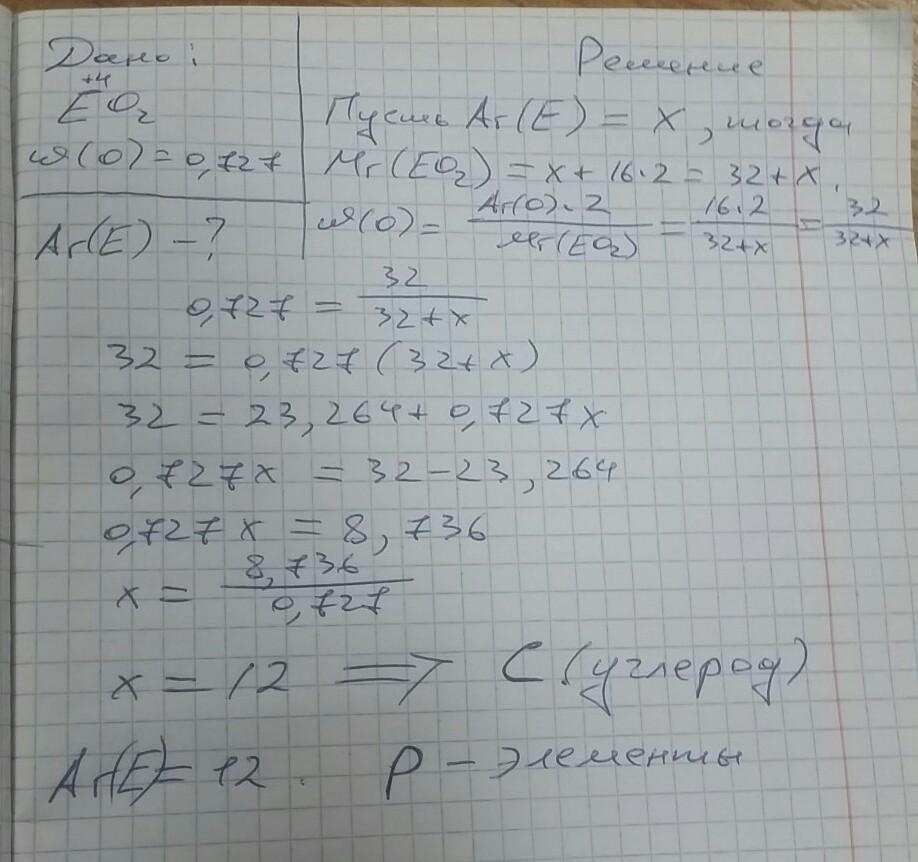 Дано:
+4
EO₂
ω(O) = 0,727
Ar(E) – ?
Решение
Пусть Ar(E) = x, тогда
Mr(EO₂) = x + 16·2 = 32 + x.
ω(O) = Ar(O)·2 / Mr(EO₂) = 16·2 / 32+x = 32 / 32+x
0,727 = 32 / 32+x
32 = 0,727 (32+x)
32 = 23,264 + 0,727x
0,727x = 32 – 23,264
0,727x = 8,736
x = 8,736 / 0,727
x = 12 ⟹ C (углерод)
Ar(E) = 12. P – элементы